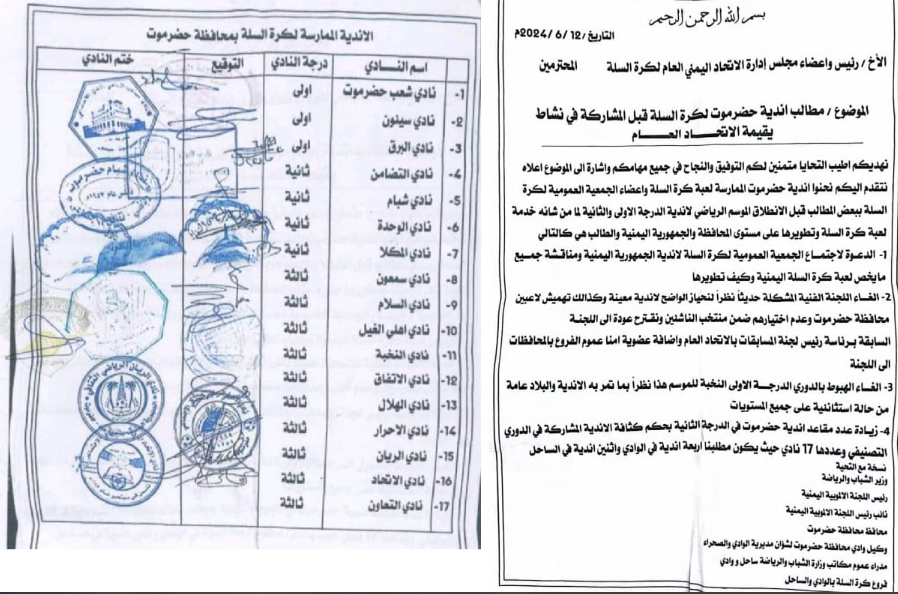 بسم الله الرحمن الرحيم
التاريخ /12/ 6 /2024م
الأخ / رئيس واعضاء مجلس إدارة الاتحاد اليمني العام لكرة السلة المحترمين
الموضوع / مطالب اندية حضرموت لكرة السلة قبل المشاركة في نشاط
بقيمة الاتحاد العام
نهديكم اطيب التحايا متمنين لكم التوفيق والنجاح في جميع مهامكم واشارة الى الموضوع اعلاه
نتقدم اليكم نحنوا اندية حضرموت الممارسة لعبة كرة السلة واعضاء الجمعية العمومية لكرة
السلة ببعض المطالب قبل الانطلاق الموسم الرياضي لاندية الدرجة الاولى والثانية لما من شانه خدمة
لعبة كرة السلة وتطويرها على مستوى المحافظة والجمهورية اليمنية والطالب هي كالتالي
1- الدعوة لاجتماع الجمعية العمومية لكرة السلة لاندية الجمهورية اليمنية ومناقشة جميع
مايخص لعبة كرة السلة اليمنية وكيف تطويرها
2- الغاء اللجنة الفنية المشكلة حديثاً نظراً لنحياز الواضح لاندية معينة وكذالك تهميش لاعبين
محافظة حضرموت وعدم اختيارهم ضمن منتخب الناشئين ونقترح عودة الى اللجنة
السابقة برئاسة رئيس لجنة المسابقات بالاتحاد العام واضافة عضوية امنا عموم الفروع بالمحافظات
الى اللجنة
3- الغاء الهبوط بالدوري الدرجة الاولى النخبة للموسم هذا نظراً بما تمر به الاندية والبلاد عامة
من حالة استثنائية على جميع المستويات
4- زيادة عدد مقاعد اندية حضرموت في الدرجة الثانية بحكم كثافة الاندية المشاركة في الدوري
التصنيفي وعددها 17 نادي حيث يكون مطلبنا أربعة أندية في الوادي واثنين اندية في الساحل
نسخة مع التحية
وزير الشباب والرياضة
رئيس اللجنة الالومبية اليمنية
نائب رئيس اللجنة الالومبية اليمنية
محافظ محافظة حضرموت
وكيل وادي محافظة حضرموت لشؤان مديرية الوادي والصحراء
مدراء عموم مكاتب وزارة الشباب والرياضة ساحل و وادي
فروع كرة السلة بالوادي والساحل
الاندية الممارسة لكرة السلة بمحافظة حضرموت
اسم النادي درجة النادي التوقيع ختم النادي
1- نادي شعب حضرموت اولى
2- نادي سيئون اولى
3- نادي البرق اولى
4- نادي التضامن ثانية
5- نادي شبام ثانية
6- نادي الوحدة ثانية
7- نادي المكلا ثانية
8- نادي سمعون ثالثة
9- نادي السلام ثالثة
10- نادي اهلي الغيل ثالثة
11- نادي النخبة ثالثة
12- نادي الاتفاق ثالثة
13- نادي الهلال ثالثة
14- نادي الاحرار ثالثة
15- نادي الريان ثالثة
16- نادي الاتحاد ثالثة
17- نادي التعاون ثالثة